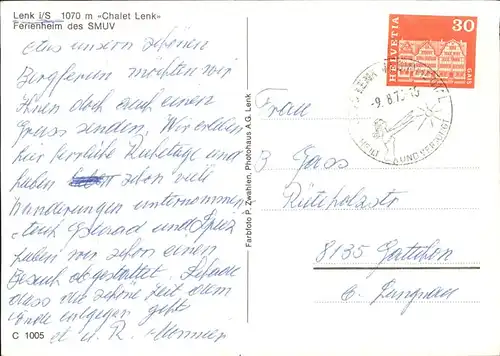 Lenk i/S 1070 m «Chalet Lenk»
Ferienheim des SMUV
Aus unsern schönen
Bergferien möchten wir
Ihnen doch auch einen
Gruss senden. Wir erleben
hier herrliche Ruhetage und
haben schon viele
Wanderungen unternommen
Auch Gstaad und Spiez
haben wir schon einen
Besuch abgestattet. Schade
dass die schöne Zeit dem
Ende entgegen geht
u. R.
C 1005
Farbfoto P. Zwahlen, Photohaus A.G. Lenk
HELVETIA
30
GAIS
LENK
-9.8.7
Frau
B Gass
8135